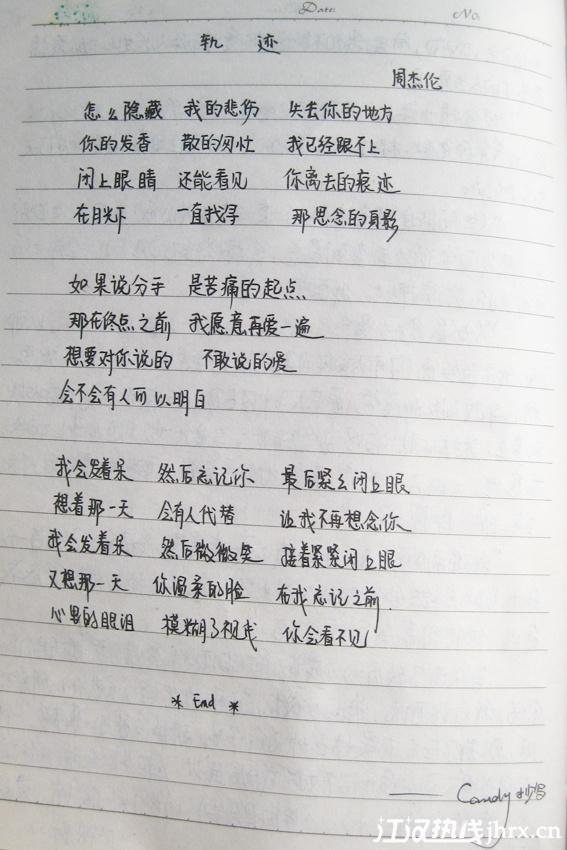 Date: No.
轨 迹
周杰伦
怎么隐藏 我的悲伤 失去你的地方
你的发香 散的匆忙 我已经跟不上
闭上眼睛 还能看见 你离去的痕迹
在月光下 一直找寻 那思念的身影
如果说分手 是苦痛的起点
那在终点之前 我愿意再爱一遍
想要对你说的 不敢说的爱
会不会有人可以明白
我会发着呆 然后忘记你 最后紧紧闭上眼
想着那一天 会有人代替 让我不再想念你
我会发着呆 然后微微笑 接着紧紧闭上眼
又想那一天 你温柔的脸 在我忘记之前
心里的眼泪 模糊了视线 你会看不见
* End *
—— Candy
江汉热线jhrx.cn